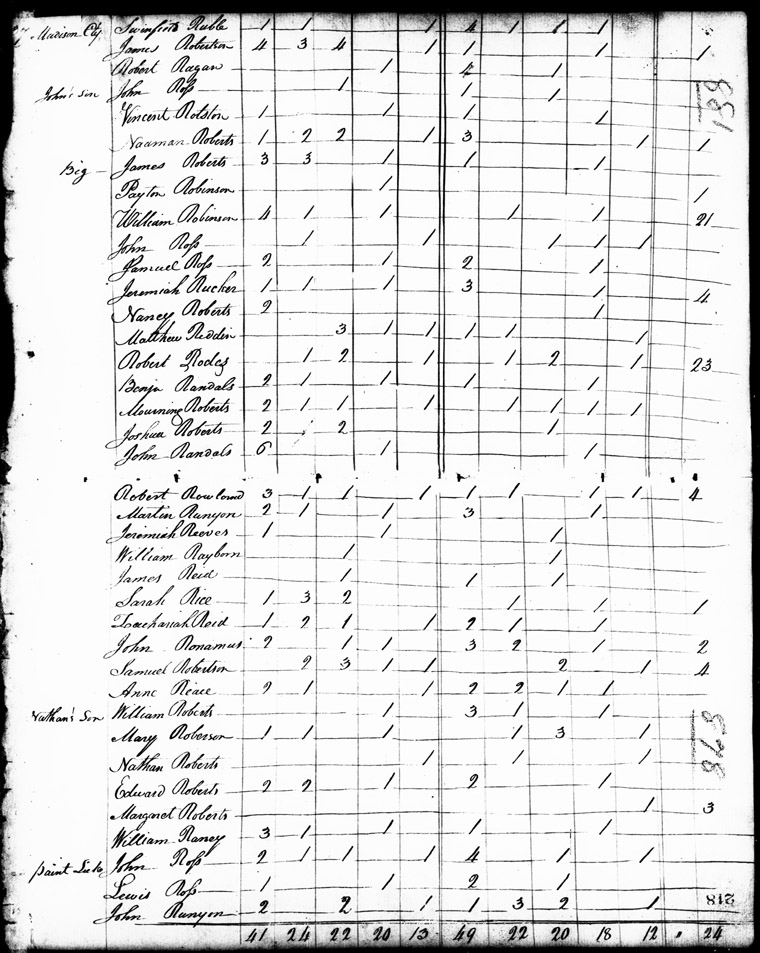 Madison Cty Swinfield Ruble 1 1 1 4 1 1 1
James Robertson 4 3 4 1 1 1 1
Robert Ragan 1 4 1
John's son John Roſs 1 1 1
Vincent Rolston 1 1 1 1
Naaman Roberts 1 2 2 1 3 1 1
Big James Roberts 3 3 1 1 1
Payton Robinson 1 1
William Robinson 4 1 1 1 1 21
John Roſs 1 1 1 1 1
Samuel Roſs 2 1 2 1
Jeremiah Rucker 1 1 1 3 1 4
Nancy Roberts 2 1
Matthew Redden 3 1 1 1 1 1
Robert Rodes 1 2 1 1 2 1 23
Benja Randals 2 1 1 1 1
Mourning Roberts 2 1 1 1 1 1 1 1
Joshua Roberts 2 2 1
John Randals 6 1 1
Robert Rowland 3 1 1 1 1 1 1 1 4
Martin Runyon 2 1 1 3 1
Jeremiah Reeves 1 1 1
William Rayborn 1 1
James Reid 1 1 1
Sarah Rice 1 3 2 1 1 1
Zachariah Reid 1 2 1 1 2 1 1
John Ronamus 2 1 1 3 2 1 2
Samuel Robertson 2 3 1 1 2 1 4
Anne Reace 2 1 1 2 2 1 1
Nathan's Son William Roberts 1 3 1 1
Mary Roberson 1 1 1 1 3 1
Nathan Roberts 1 1 1
Edward Roberts 2 2 1 2 1
Margaret Roberts 1 3
William Raney 3 1 1 1 1
paint Lick John Roſs 2 1 1 1 4 1 1
Lewis Roſs 1 1 2 1
John Runyon 2 2 1 1 3 2 1
41 24 22 20 13 49 22 20 18 12 24
881
878
218